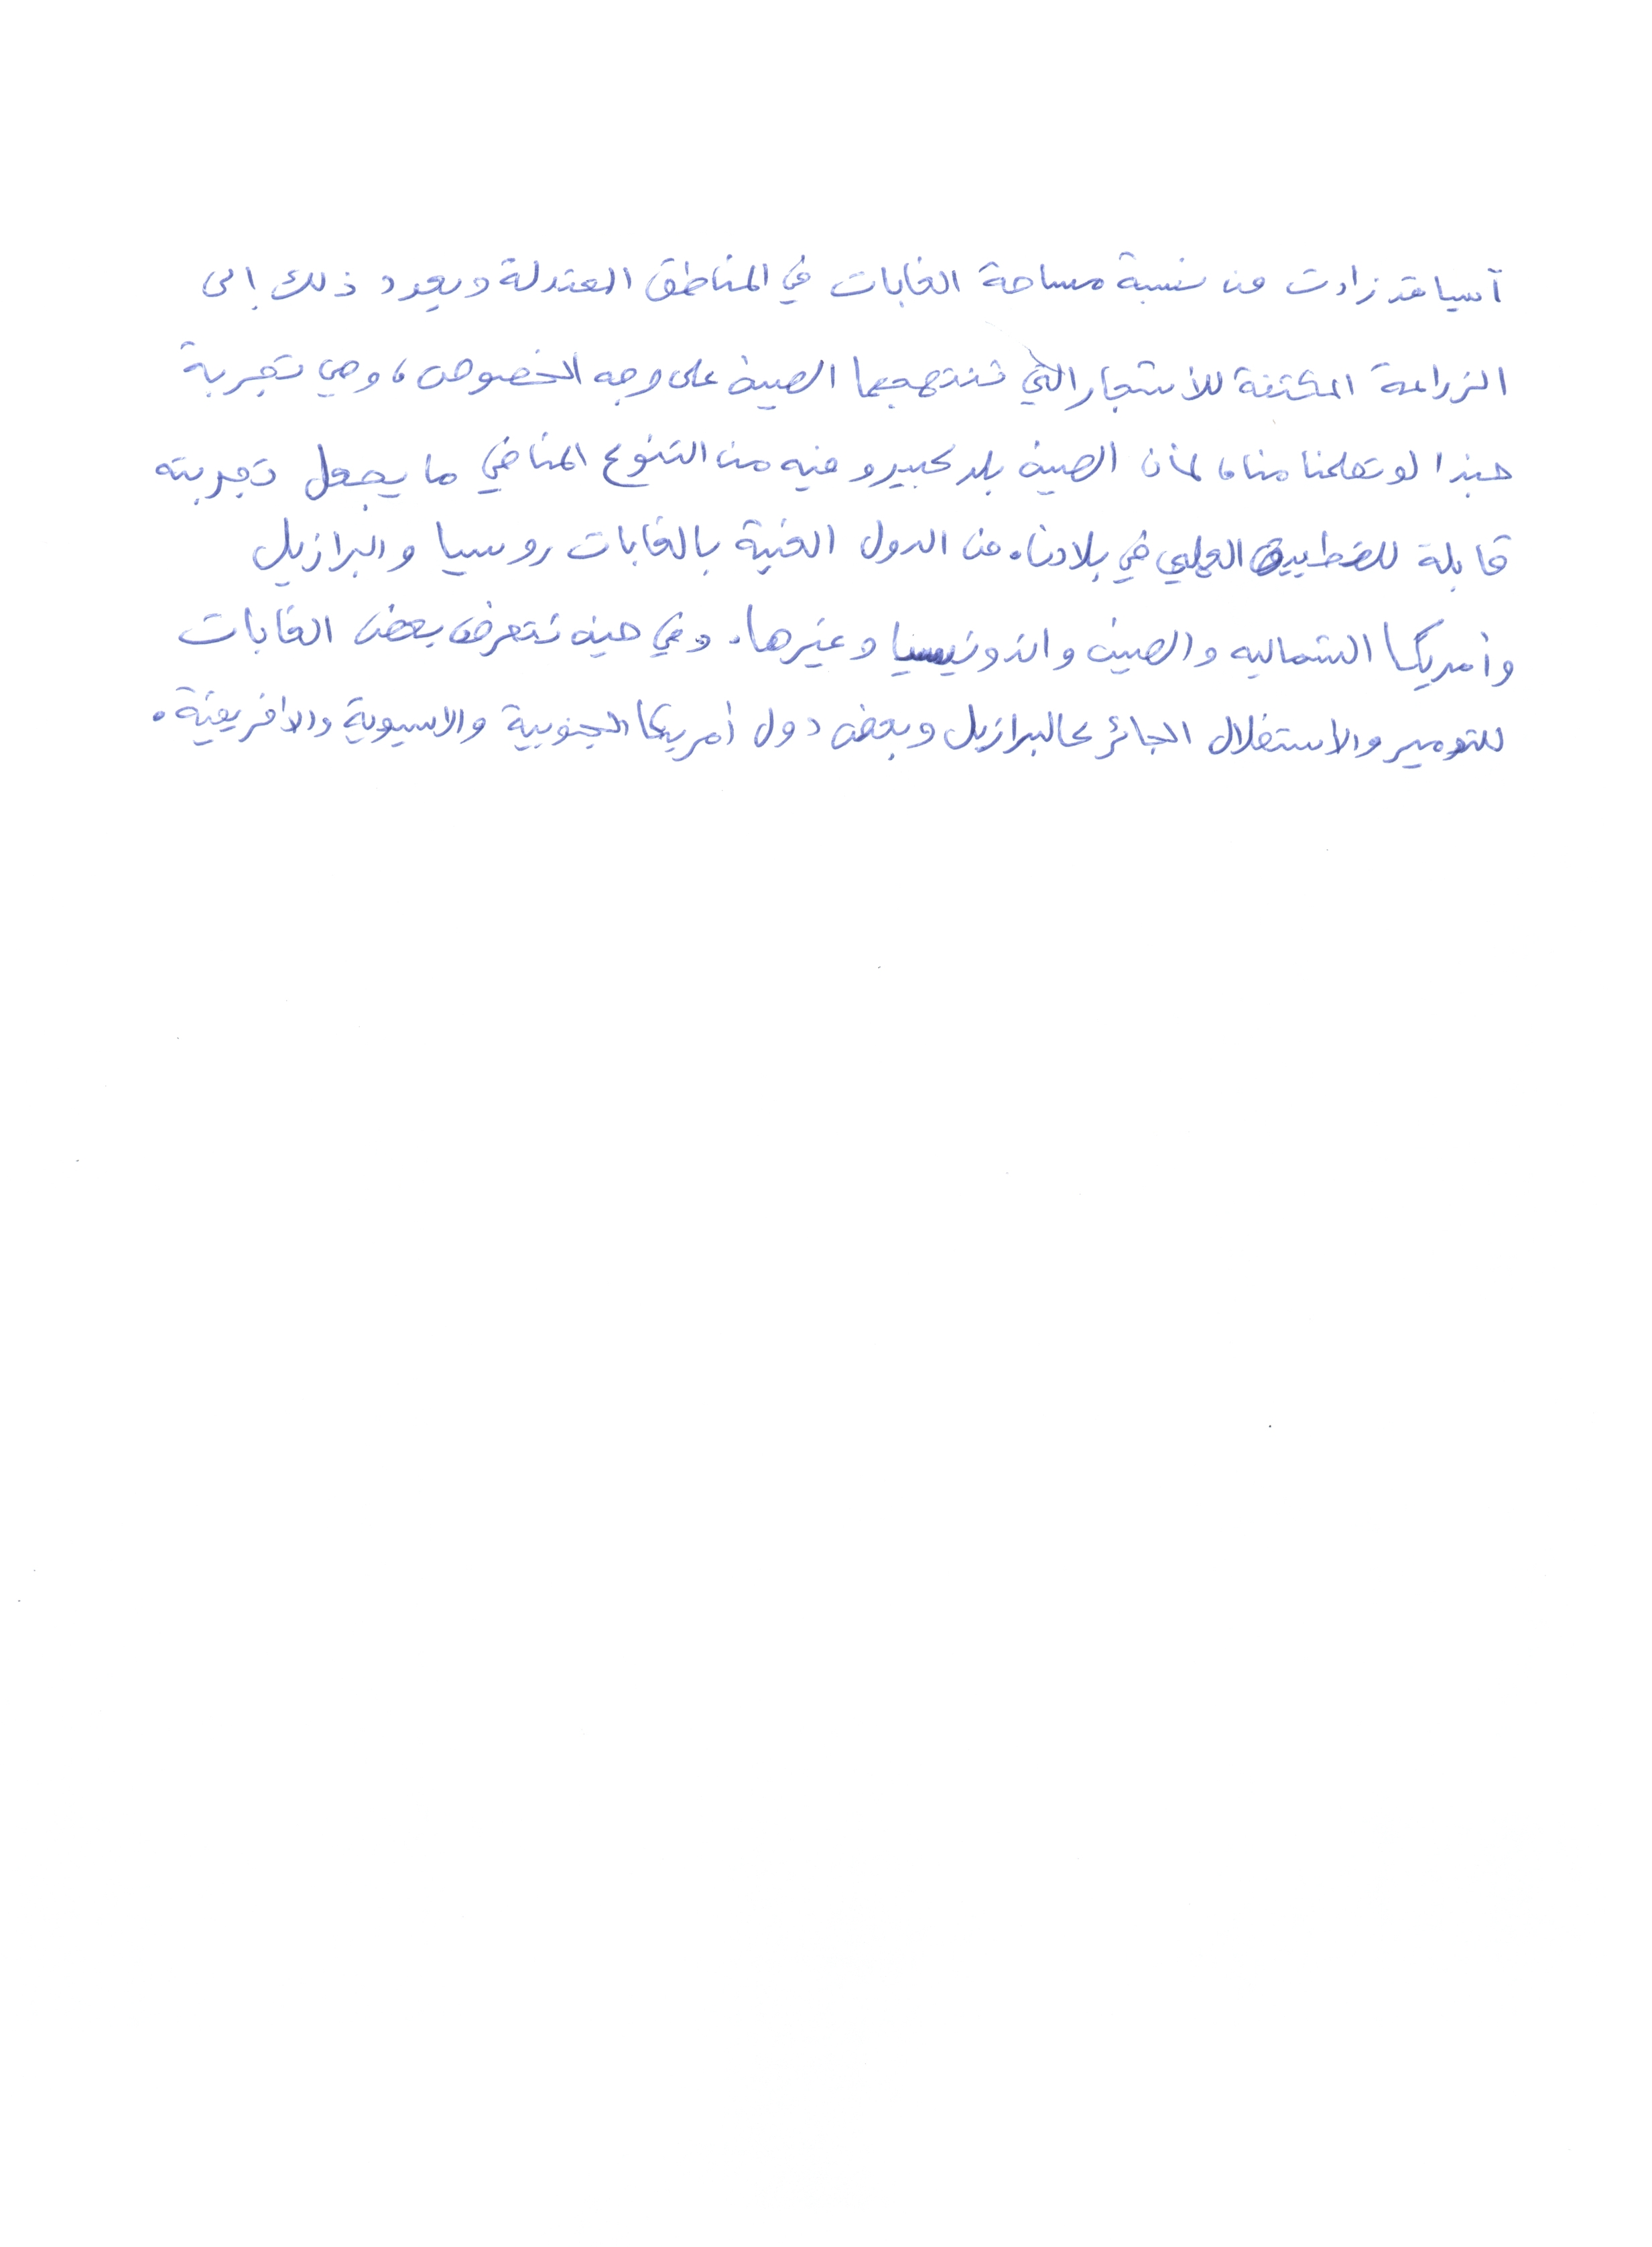 آسيا قد زادت من نسبة مساحة الغابات في المناطق المعتدلة ويعود ذلك إلى
الزراعة المكثفة للأشجار التي تنتهجها الصين على وجه الخصوص، وهي تجربة
حبذا لو تعلمنا منها، لأن الصين بلد كبير وفيه من التنوع المناخي ما يجعل تجربته
قابلة للتطبيق العملي في بلادنا. من الدول الغنية بالغابات روسيا والبرازيل
وأمريكا الشماليه والصين واندونيسيا وغيرها. وفي حين تتعرض بعض الغابات
للتدمير والاستغلال الجائر كالبرازيل وبعض دول أمريكا الجنوبية والاسيوية والافريقية.